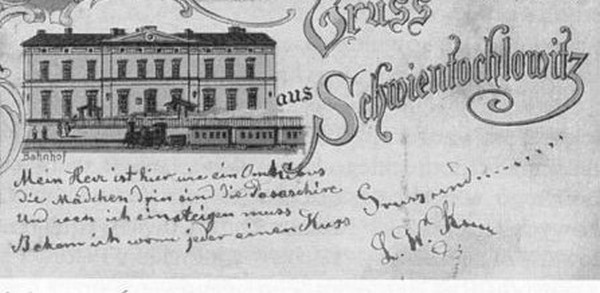 Gruss
aus Schwientochlowitz
Bahnhof
Mein Herz ist hier wie ein Omnibus
die Mädchen drin sind die
Und wen ich einsteigen muss
Bekom ich von jeder einen Kuss
Gruss und
L. W.